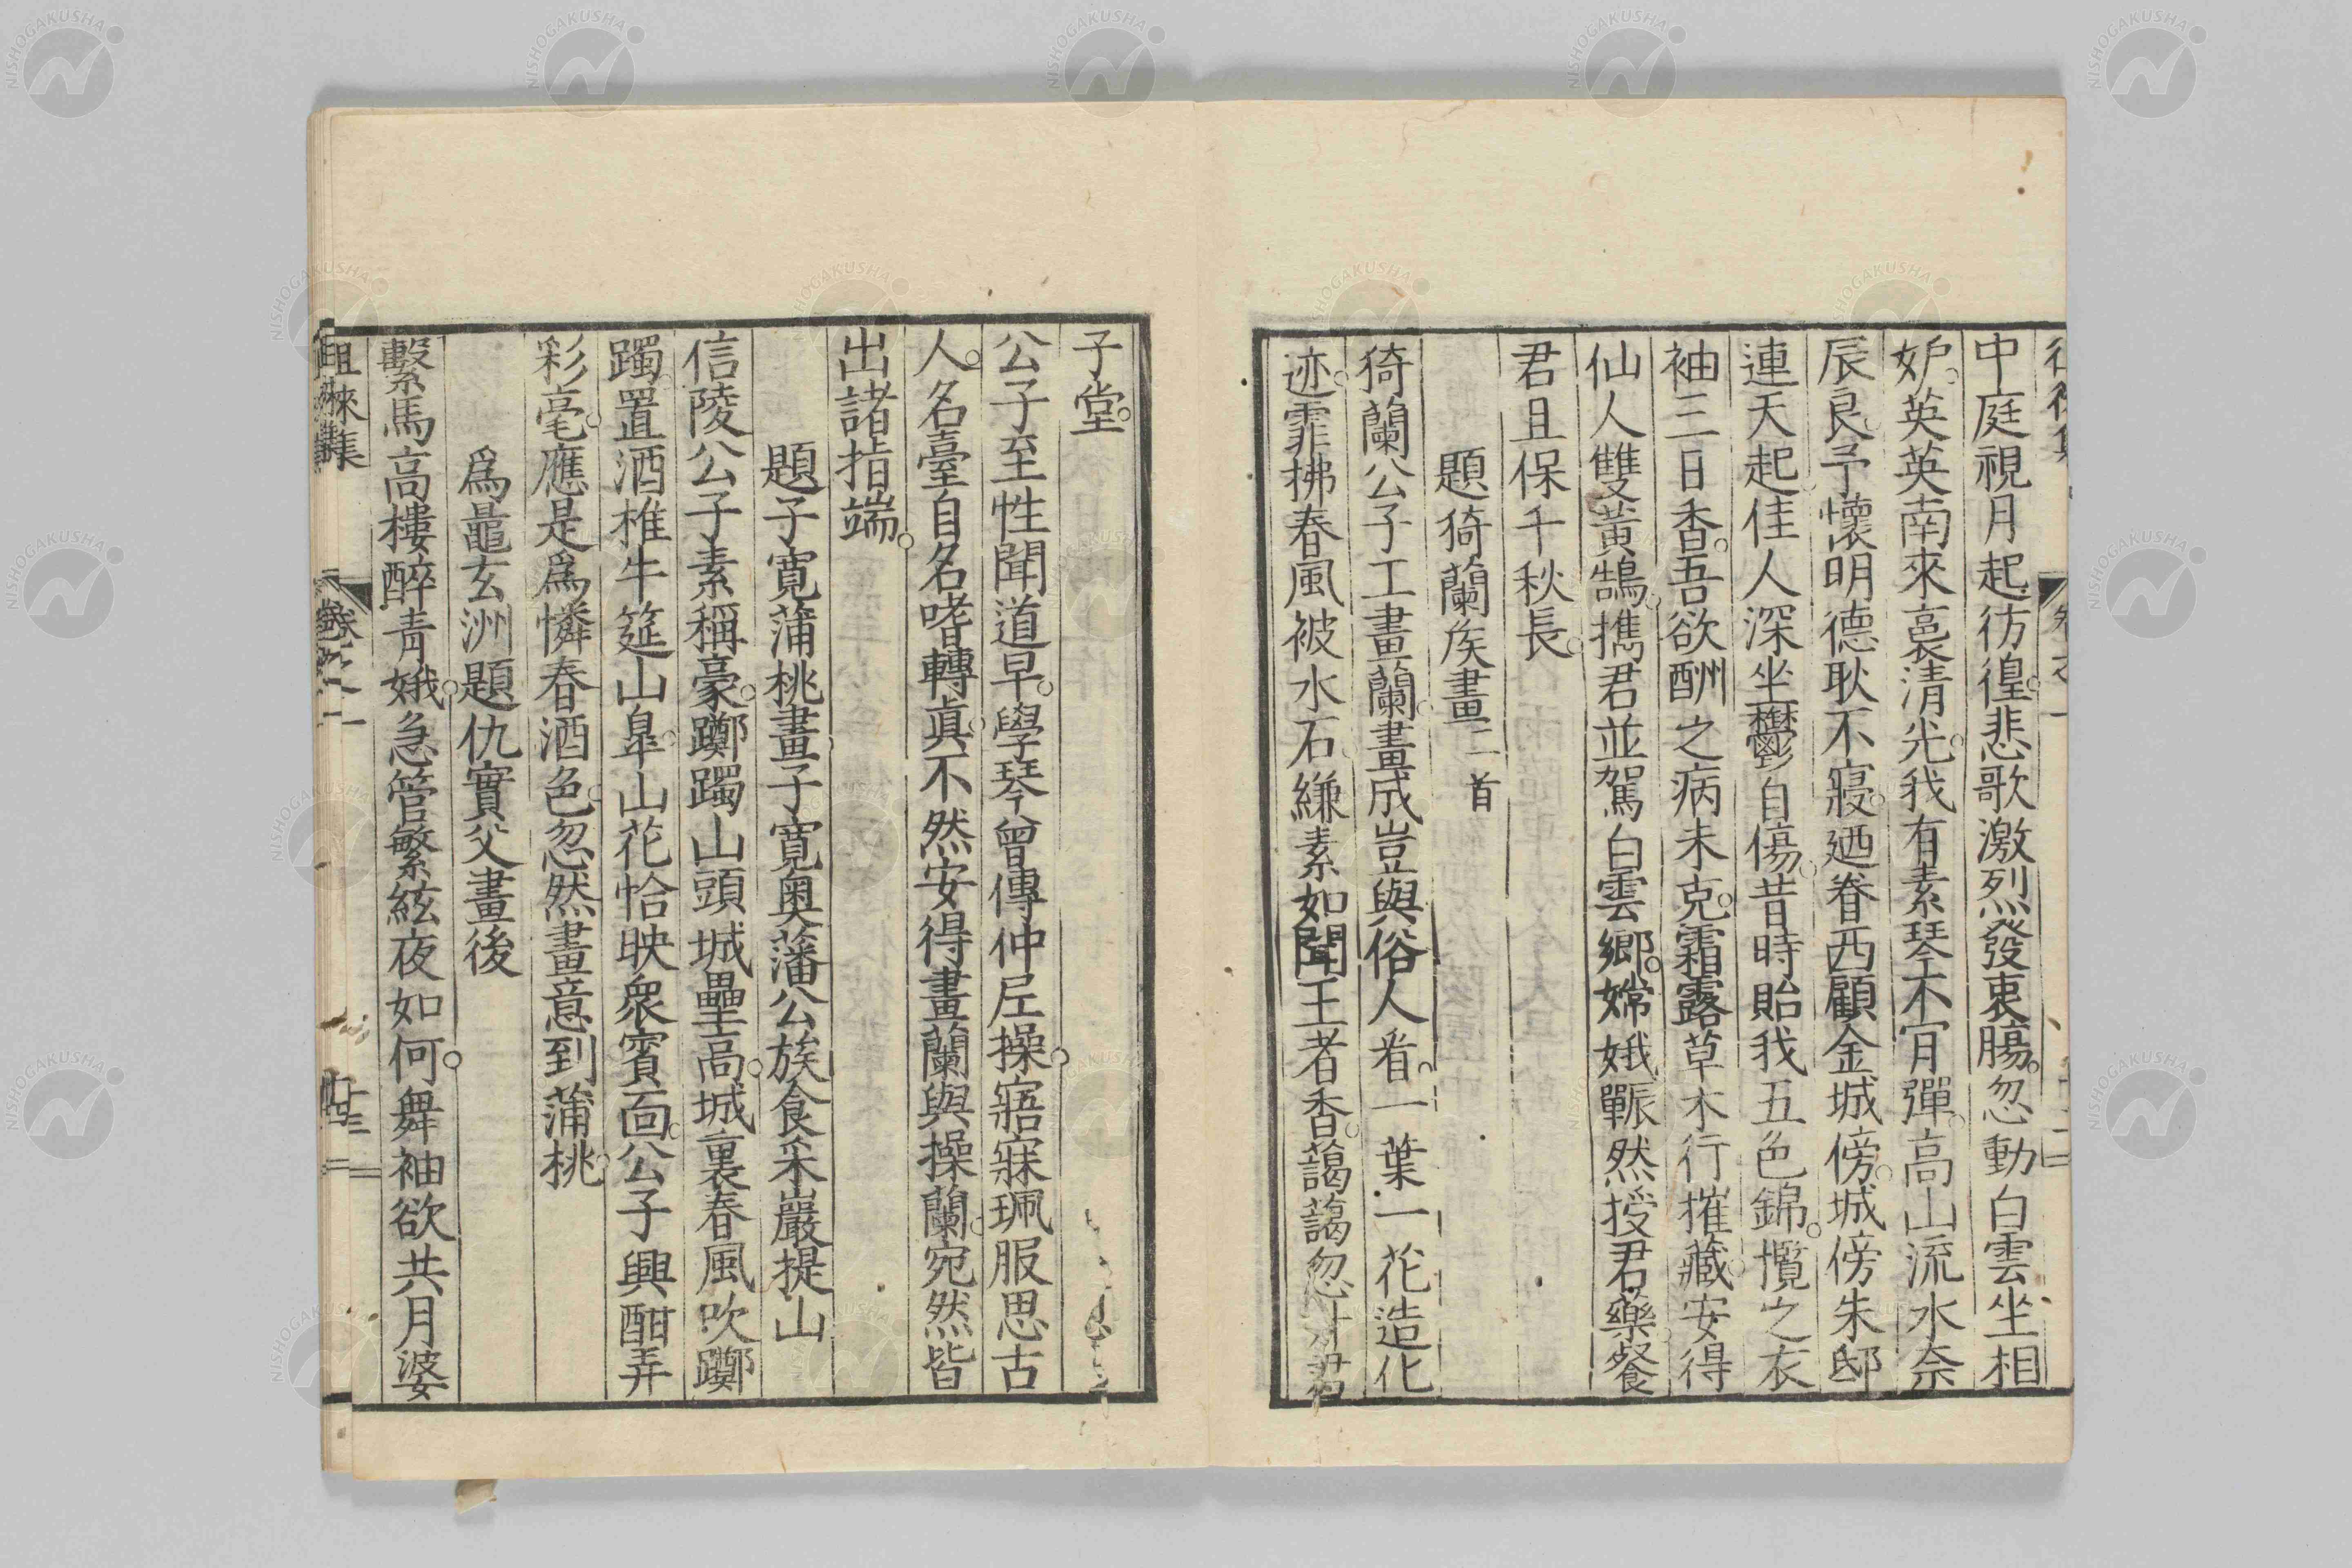 中庭視月起彷徨悲歌激烈發衷膓忽動白雲坐相
妒英英南來裛清光我有素琴不肎彈高山流水奈
辰良予懷明德耿不寢廼眷西顧金城傍城傍朱邸
連天起佳人深坐鬱自傷昔時貽我五色錦攬之衣
袖三日香吾欲酬之病未克霜露草木行摧藏安得
仙人雙黃鵠攜君並駕白雲鄉嫦娥囅然授君藥餐
君且保千秋長
題猗蘭矦畫二首
猗蘭公子工畫蘭畫成豈與俗人看一葉一花造化
迹霏拂春風被水石縑素如聞王者香藹藹忽對君
子堂
公子至性聞道早學琴曾傳仲尼操寤寐珮服思古
人名臺自名嗜轉眞不然安得畫蘭與操蘭宛然皆
出諸指端
題子寬蒲桃畫子寬奧藩公族食采巖提山
信陵公子素稱豪躑躅山頭城壘高城裏春風吹躑
躅置酒椎牛筵山皐山花恰映衆賓面公子興酣弄
彩毫應是爲憐春酒色忽然畫意到蒲桃
爲鼂玄洲題仇實父畫後
繫馬高樓醉青娥急管繁絃夜如何舞袖欲共月婆
徂徠集 卷之一 十三